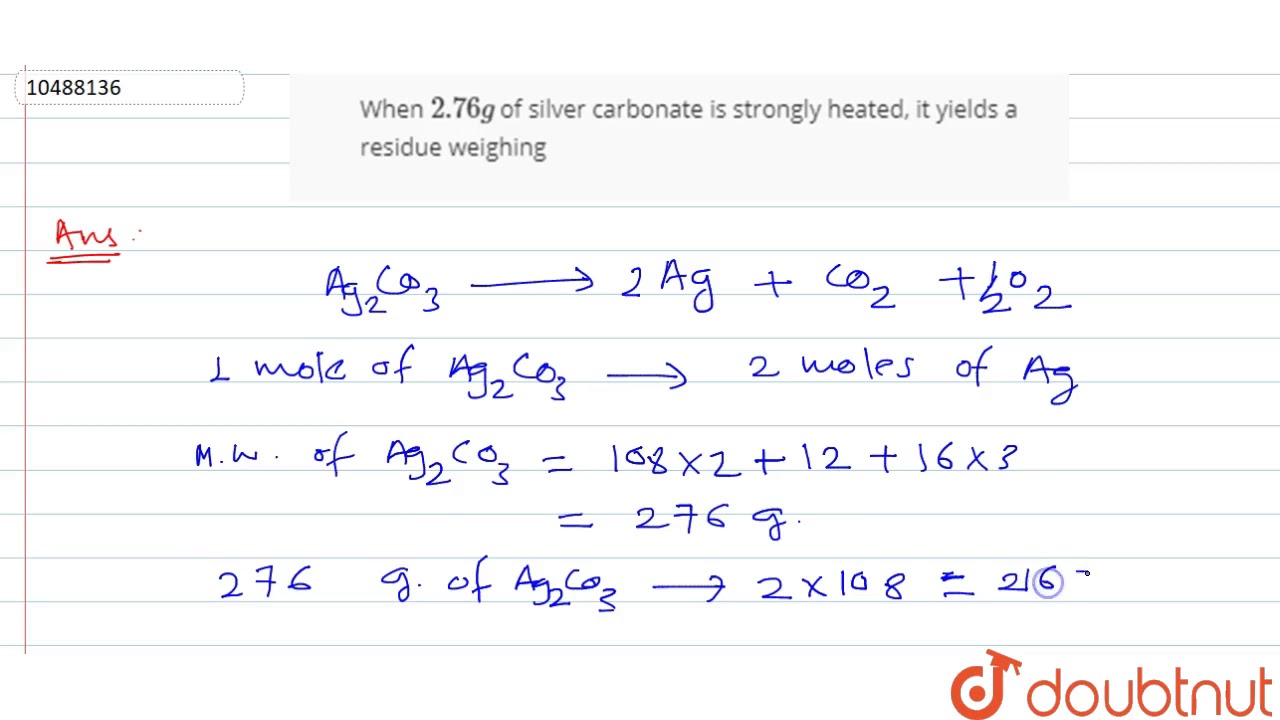 10488136
When 2.76g of silver carbonate is strongly heated, it yields a
residue weighing
Ans :
Ag₂CO₃ ⟶ 2Ag + CO₂ + 1/2 O₂
1 mole of Ag₂CO₃ ⟶ 2 moles of Ag
M.W. of Ag₂CO₃ = 108×2 + 12 + 16×3
= 276 g.
276 g. of Ag₂CO₃ ⟶ 2×108 = 216
doubtnut